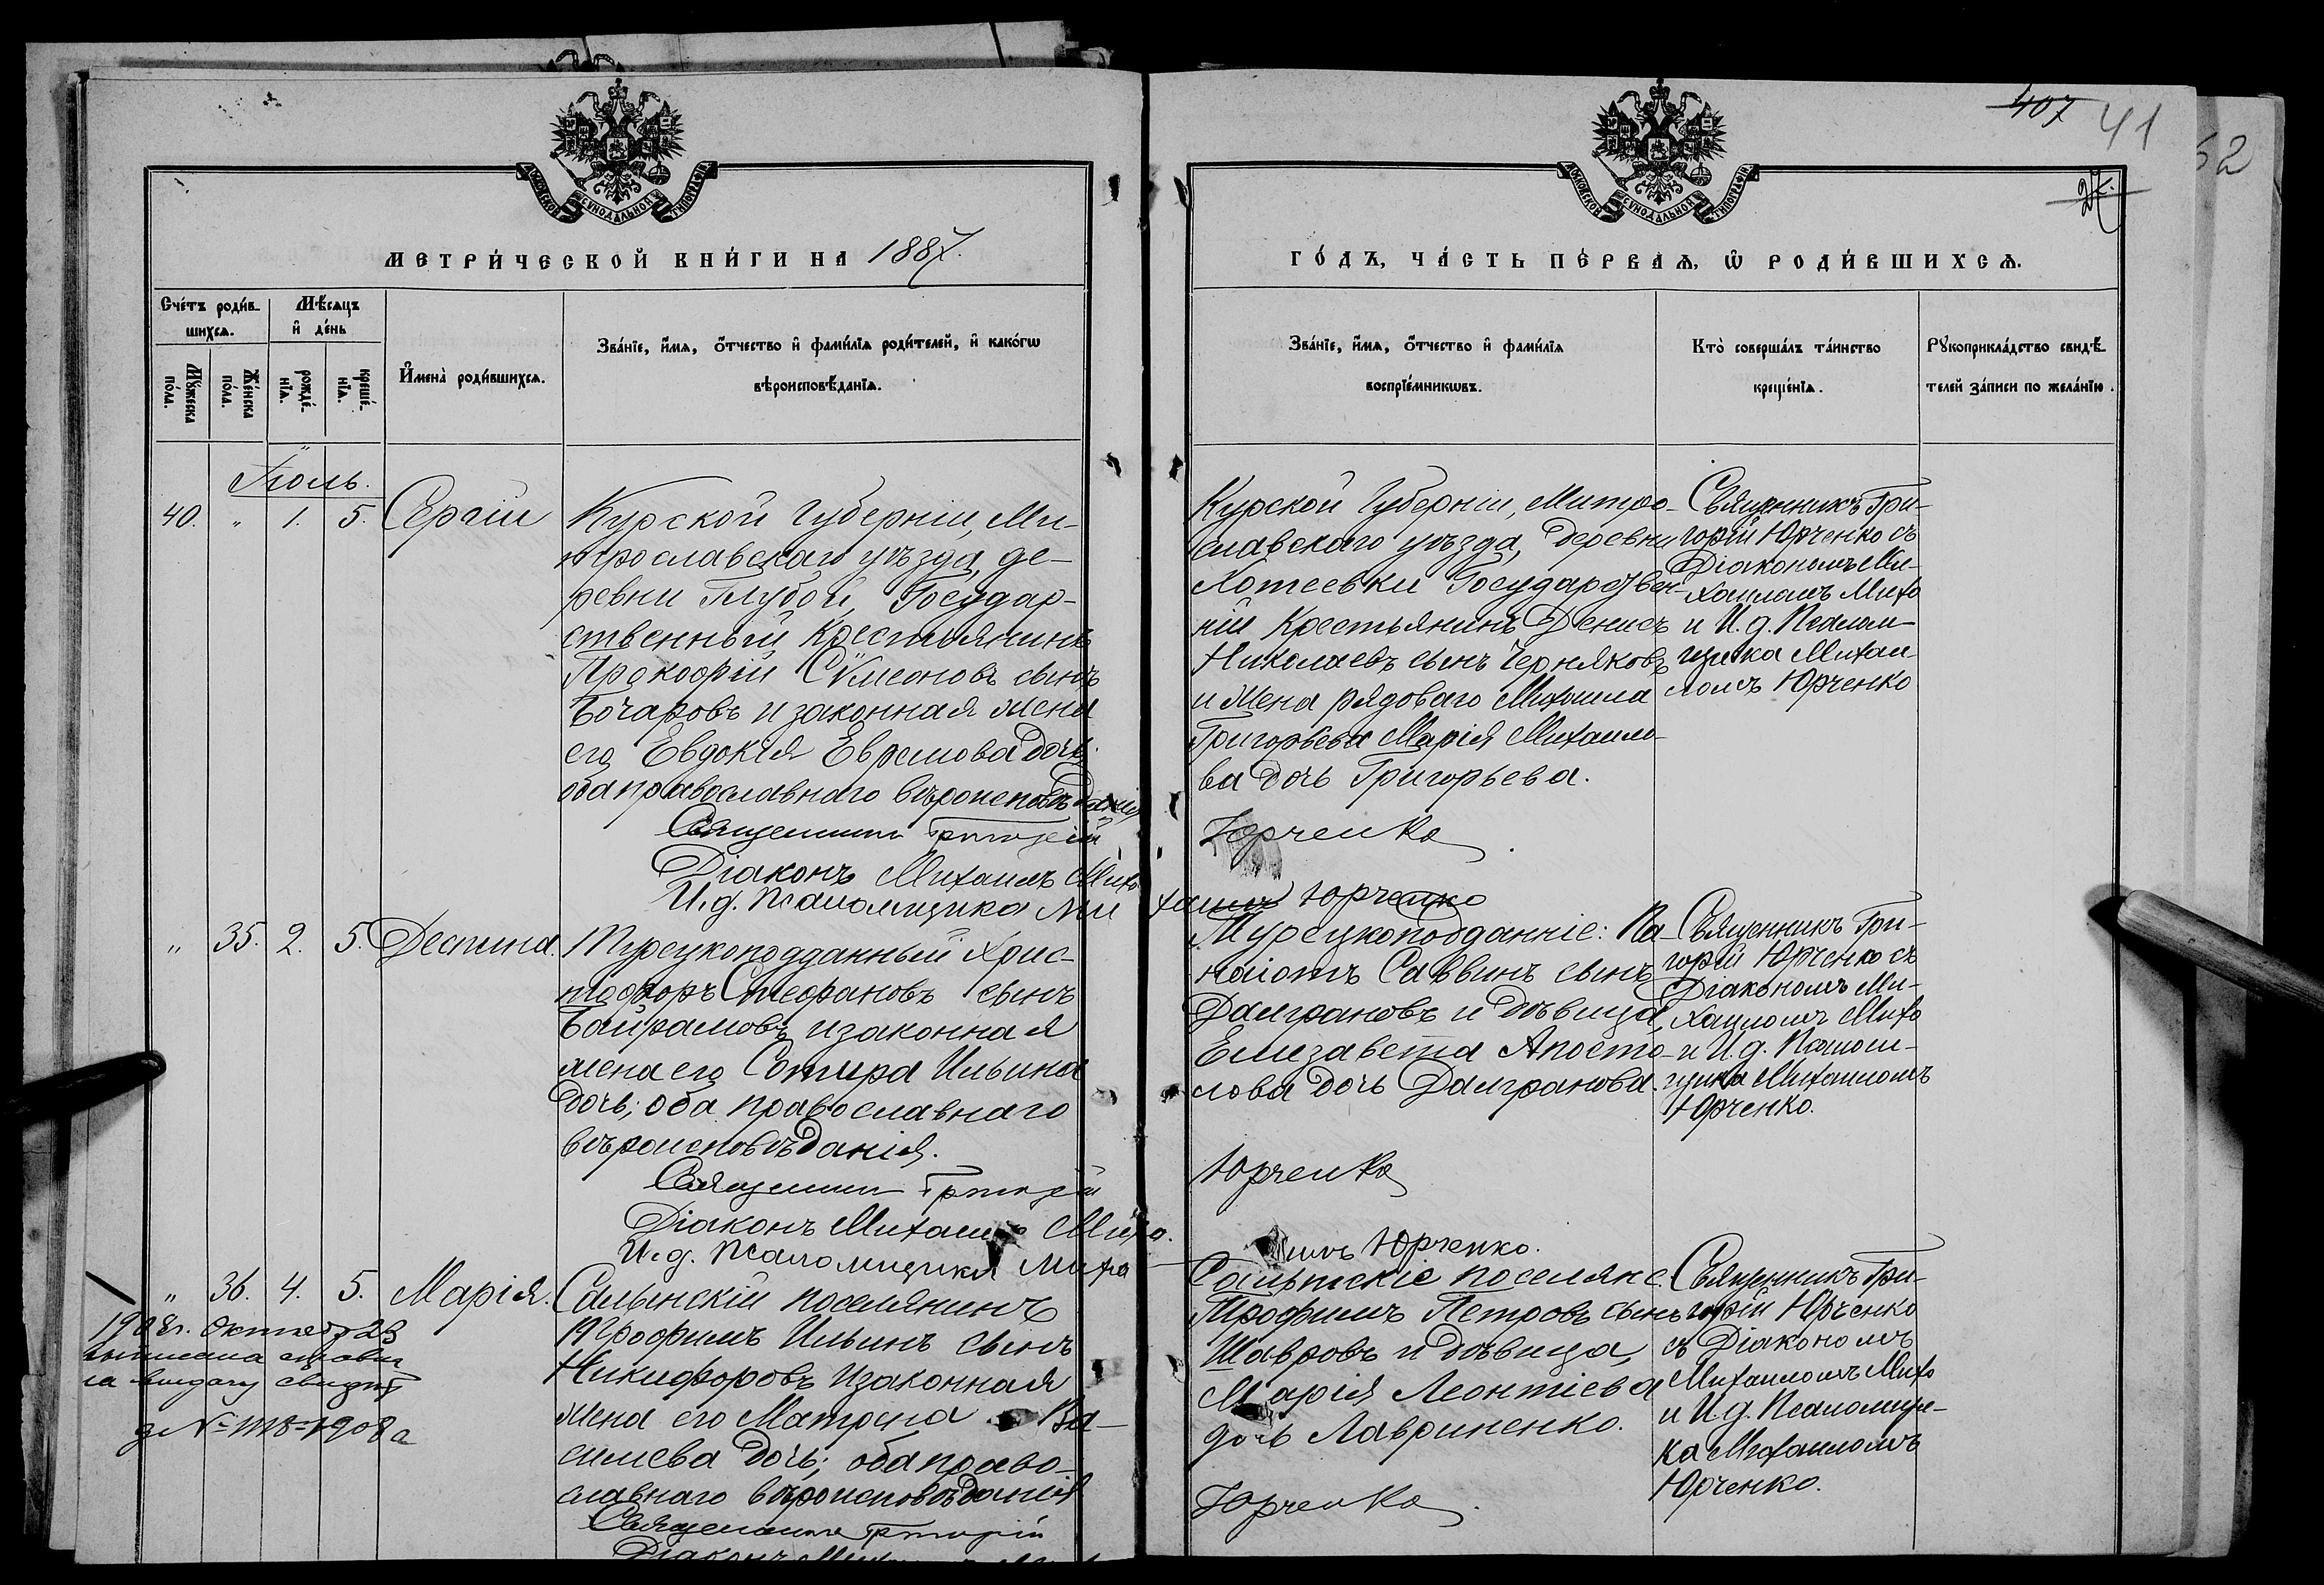 407
41
52
27.
МОСКОВСКОЙ СѴНОДАЛЬНОЙ ТИПОГРАФІИ
МОСКОВСКОЙ СѴНОДАЛЬНОЙ ТИПОГРАФІИ
МЕТРИ́ЧЕСКОЙ КНИ́ГИ НА 1887.
ГО́ДЪ, ЧА́СТЬ ПЕ́РВАѦ, Ѿ РОДИ́ВШИХСѦ.
Сче́тъ роди́в-
шихсѧ.
Мꙋ́жеска по́ла.
Же́нска по́ла.
Мѣ́сѧцъ
и҆ де́нь
рожде́-
нїѧ.
креще́-
нїѧ.
И҆мена̀ роди́вшихсѧ.
Зва́нїе, и҆́мѧ, ѻ҆́тчество и҆ фами́лїѧ роди́телей, и҆ како́гѡ
вѣроисповѣ́данїѧ.
Зва́нїе, и҆́мѧ, ѻ҆́тчество и҆ фами́лїѧ
воспрїе́мникѡвъ.
Кто̀ соверша́лъ та́инство
креще́нїѧ.
Рꙋкоприкла́дство свидѣ́-
телей за́писи по жела́нїю.
Іюль.
40. " 1. 5. Сергій
Курской Губерніи, Ми-
трославскаго уѣзда, де-
ревни Глубой, Государ-
ственный крестьянинъ
Прокофій Сѵмеоновъ сынъ
Бочаровъ и законная жена
его Евдокія Ефремова дочь
оба православнаго вѣроисповѣданія
Священникъ Григорій
Діаконъ Михаилъ Михо
И. д. Псаломщика Ми
Курской Губерніи, Митро-
славскаго уѣзда, деревни
Хотеевки Государствен-
ній Крестьянинъ Денисъ
Николаевъ сынъ Черняковъ
и Жена рядоваго Михаила
Григорьева Марія Михаило-
ва дочь Григорьева.
Юрченко
хаилъ Юрченко
Священникъ Гри-
горій Юрченко съ
Діакономъ Ми-
хаиломъ Михо
и И. д. Псалом-
щика Михаи-
ломъ Юрченко
" 35. 2. 5. Деспина.
Турецкоподданный Хрис-
тофоръ Стефановъ сынъ
Байрамовъ и законная
жена его Сотира Ильина
дочь; оба православнаго
вѣроисповѣданія.
Священникъ Григорій
Діаконъ Михаилъ Михо.
И. д. Псаломщика Миха
Турецкоподданніе: Па-
наіотъ Саввинъ сынъ
Дамрановъ и дѣвица,
Елизавета Апосто-
лова дочь Дамранова.
Юрченко
илъ Юрченко.
Священникъ Гри-
горій Юрченко съ
Діакономъ Ми-
хаиломъ Михо
и И. д. Псалом-
щика Михаиломъ
Юрченко.
" 36. 4. 5. Марія.
1908 г. Октяб 23
выписана
на выдачу свидѣт
1908
Салынскій поселянинъ
Трофимъ Ильинъ сынъ
Никифоровъ и законная
жена его Матрона Ва-
силева дочь; оба право-
славнаго вѣроисповѣданія
Священникъ Григорій
Діаконъ
поселяне
Трофимъ Петровъ сынъ
Шавровъ и дѣвица,
Марія Леонтіева
дочь Лавриненко.
Юрченко
Священникъ Гри-
горій Юрченко
съ Діакономъ
Михаиломъ Михо
и И. д. Псаломщи-
ка Михаиломъ
Юрченко.